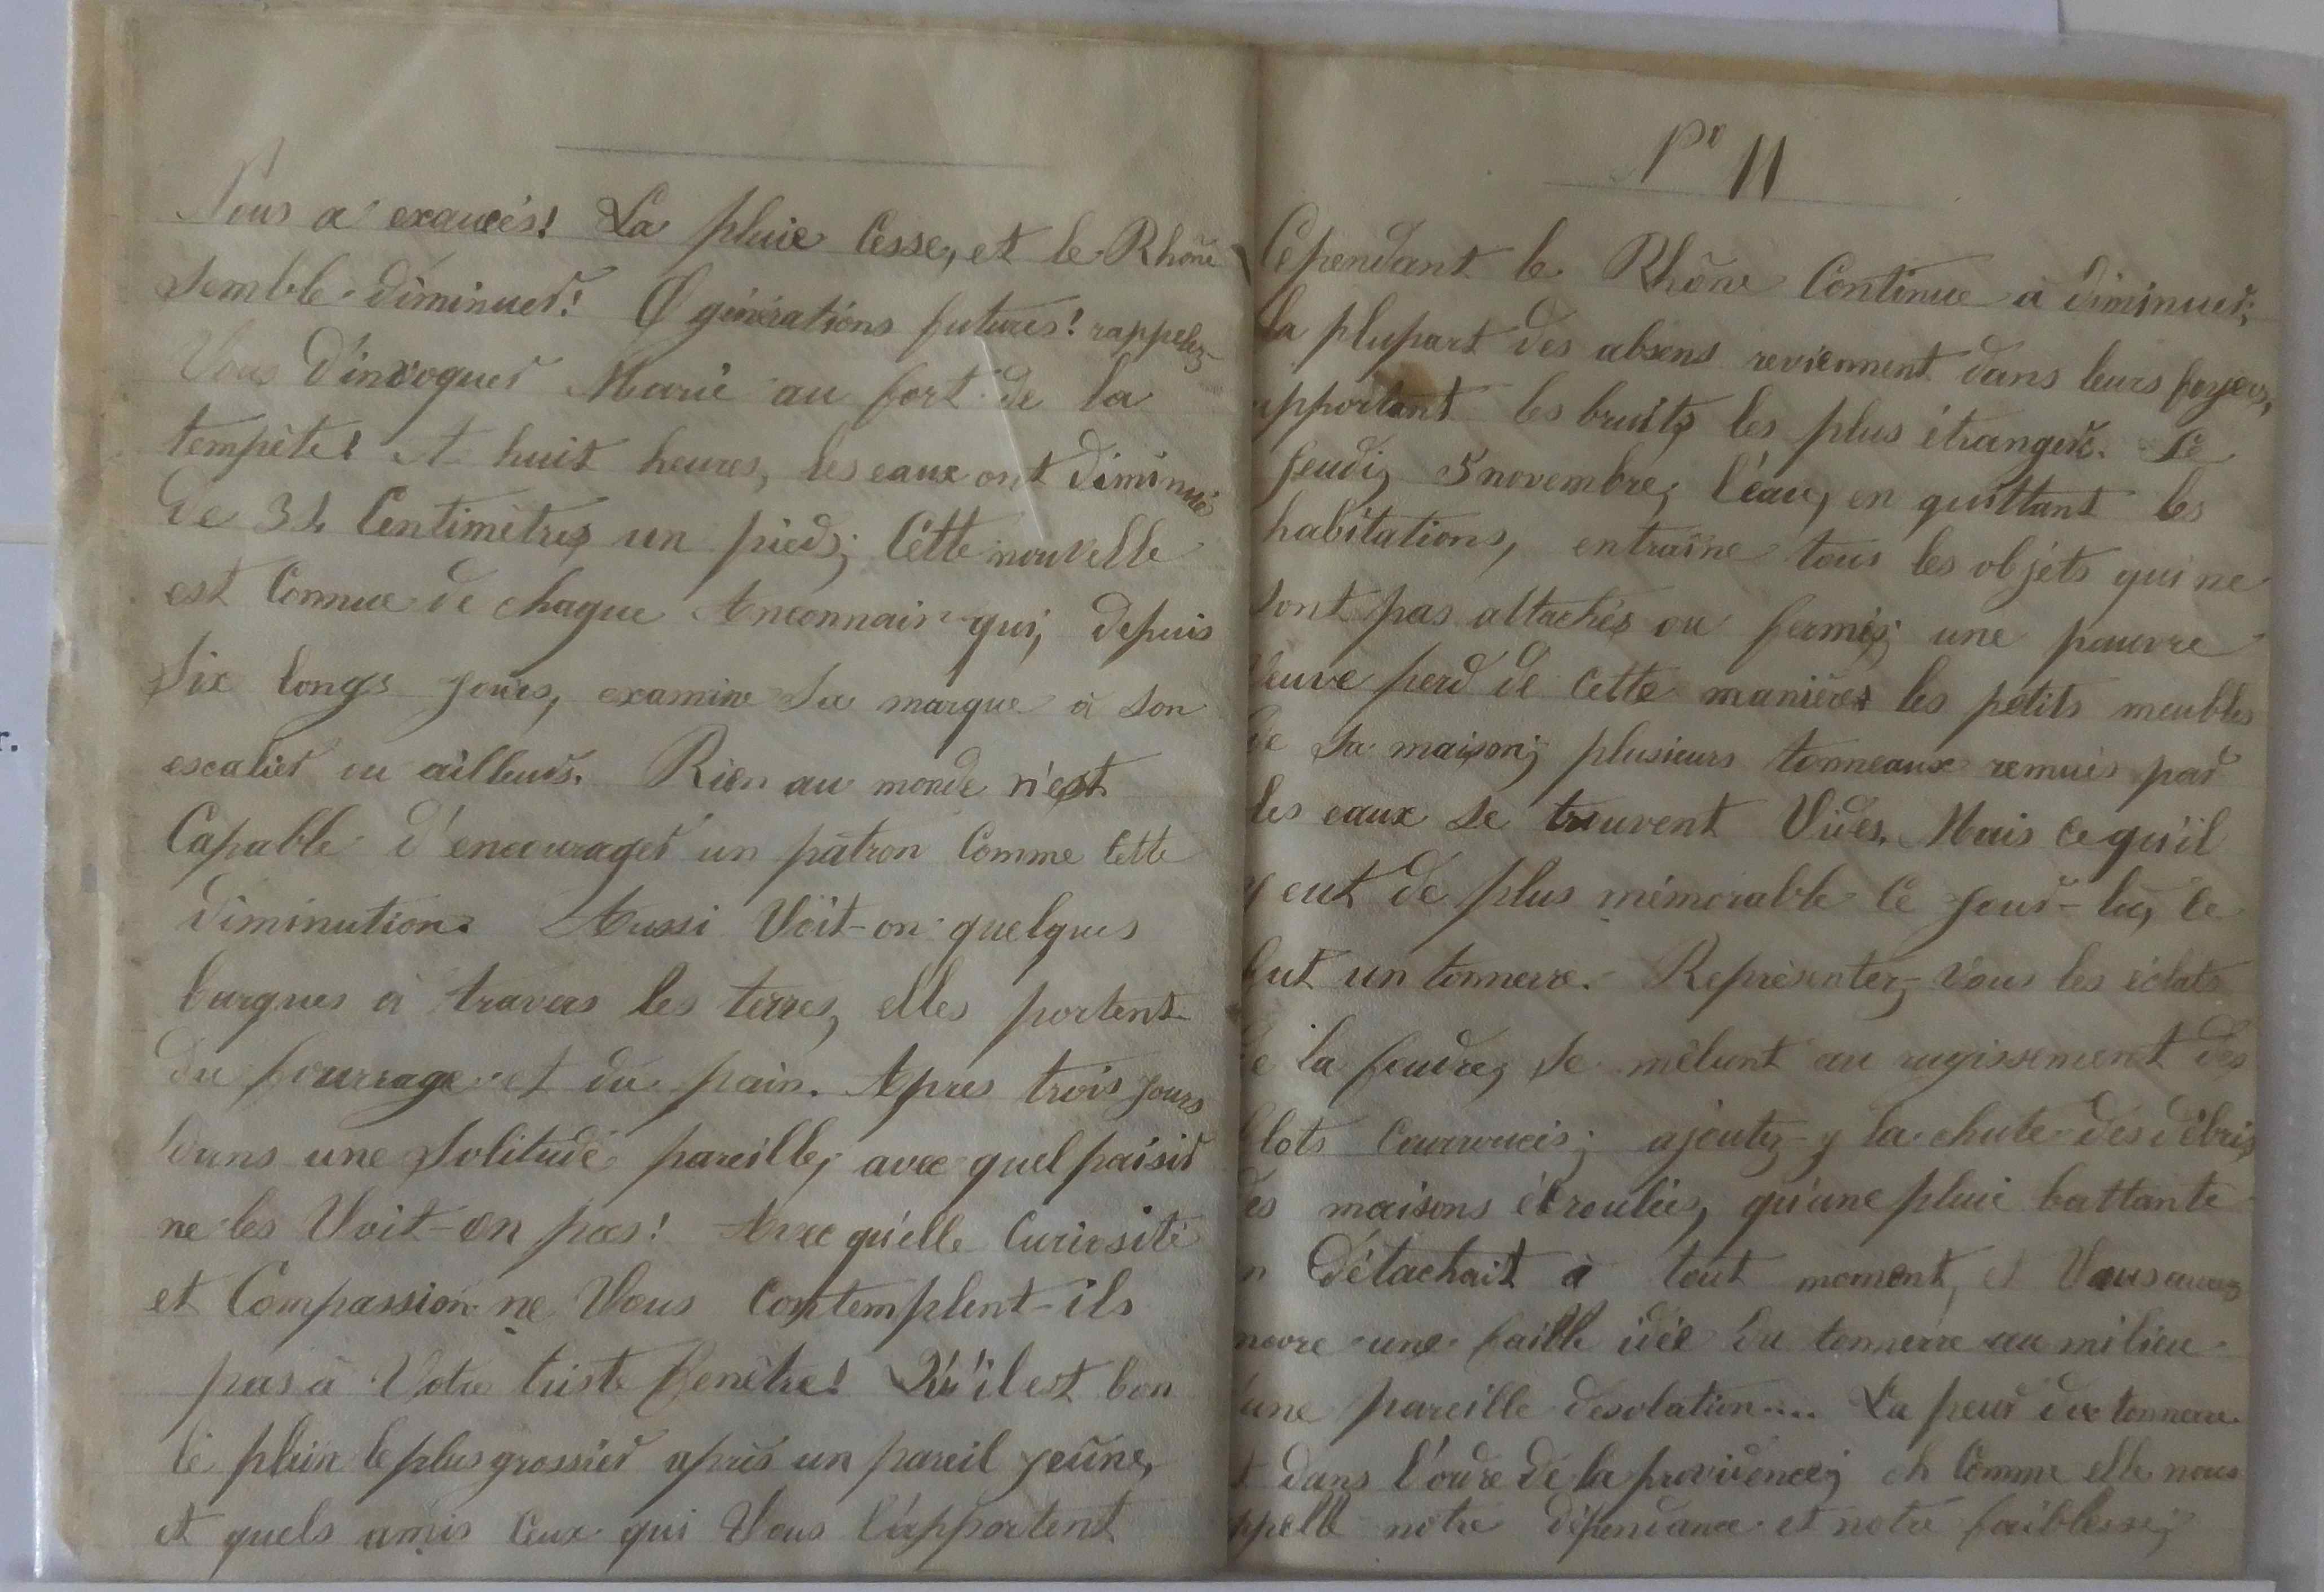 Nous a exaucés! La pluie Cesse, et le Rhône
Semble diminuer! O générations futures! rappelez-
Vous D'invoquer Marie au fort de la
tempête! A huit heures, les eaux ont diminué
de 34 Centimètres un pied; Cette nouvelle
est Connue de chaque Anconnais qui, depuis
Six longs jours, examine Sa marque à Son
escalier ou ailleurs. Rien au monde n'est
Capable d'encourager un patron Comme Cette
diminution. Aussi Voit-on quelques
barques à travers les terres, elles portent
du fourrage et du pain. Après trois jours
dans une Solitude pareille, avec quel paisir
ne les Voit-on pas! Avec qu'elle Curiosité
et Compassion ne Vous Contemplent-ils
pas à Votre triste fenêtre! Qu'il est bon
le plus grossier après un pareil jeûne,
et quels amis Ceux qui Vous l'apportent
11
Cependant le Rhône Continue à diminuer;
la plupart des absens reviennent dans leurs foyers,
apportant les bruits les plus étranges. Le
jeudi, 5 novembre, l'eau, en quittant les
habitations, entraîne tous les objets qui ne
Sont pas attachés ou fermés; une pauvre
Veuve perd de Cette manière les petits meubles
de Sa maison; plusieurs tonneaux remués par
les eaux Se trouvent Vides. Mais Ce qu'il
y eut de plus mémorable Ce jour-là, Ce
fut un tonnerre. Représentez-Vous les éclats
de la foudre, Se mêlant au rugissement des
flots Courroucés; ajoutez-y la chute des débris
des maisons écroulées, qu'une pluie battante
en Détachait à tout moment, et Vous aurez
encore une faible idée du tonnerre au milieu
d'une pareille désolation.... La peur du tonnerre
est dans l'ordre de la providence; oh Comme elle nous
rappelle notre dépendance et notre faiblesse;